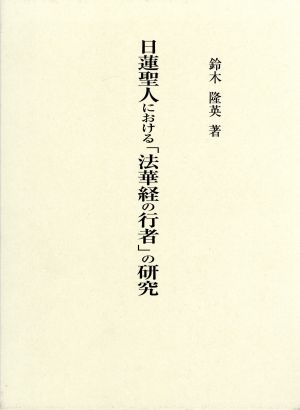 日蓮聖人における「法華経の行者」の研究
鈴木 隆英 著